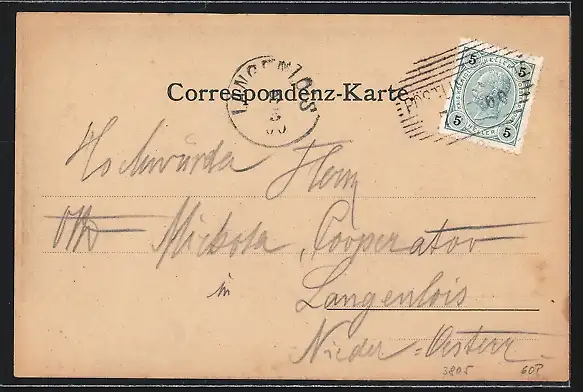 LANGENLOIS
5 5
Correspondenz-Karte
00
5 5
Hochwürden Herrn
Otto Mickota, Cooperator
in
Langenlois
Nieder-Österr.
3805 60P